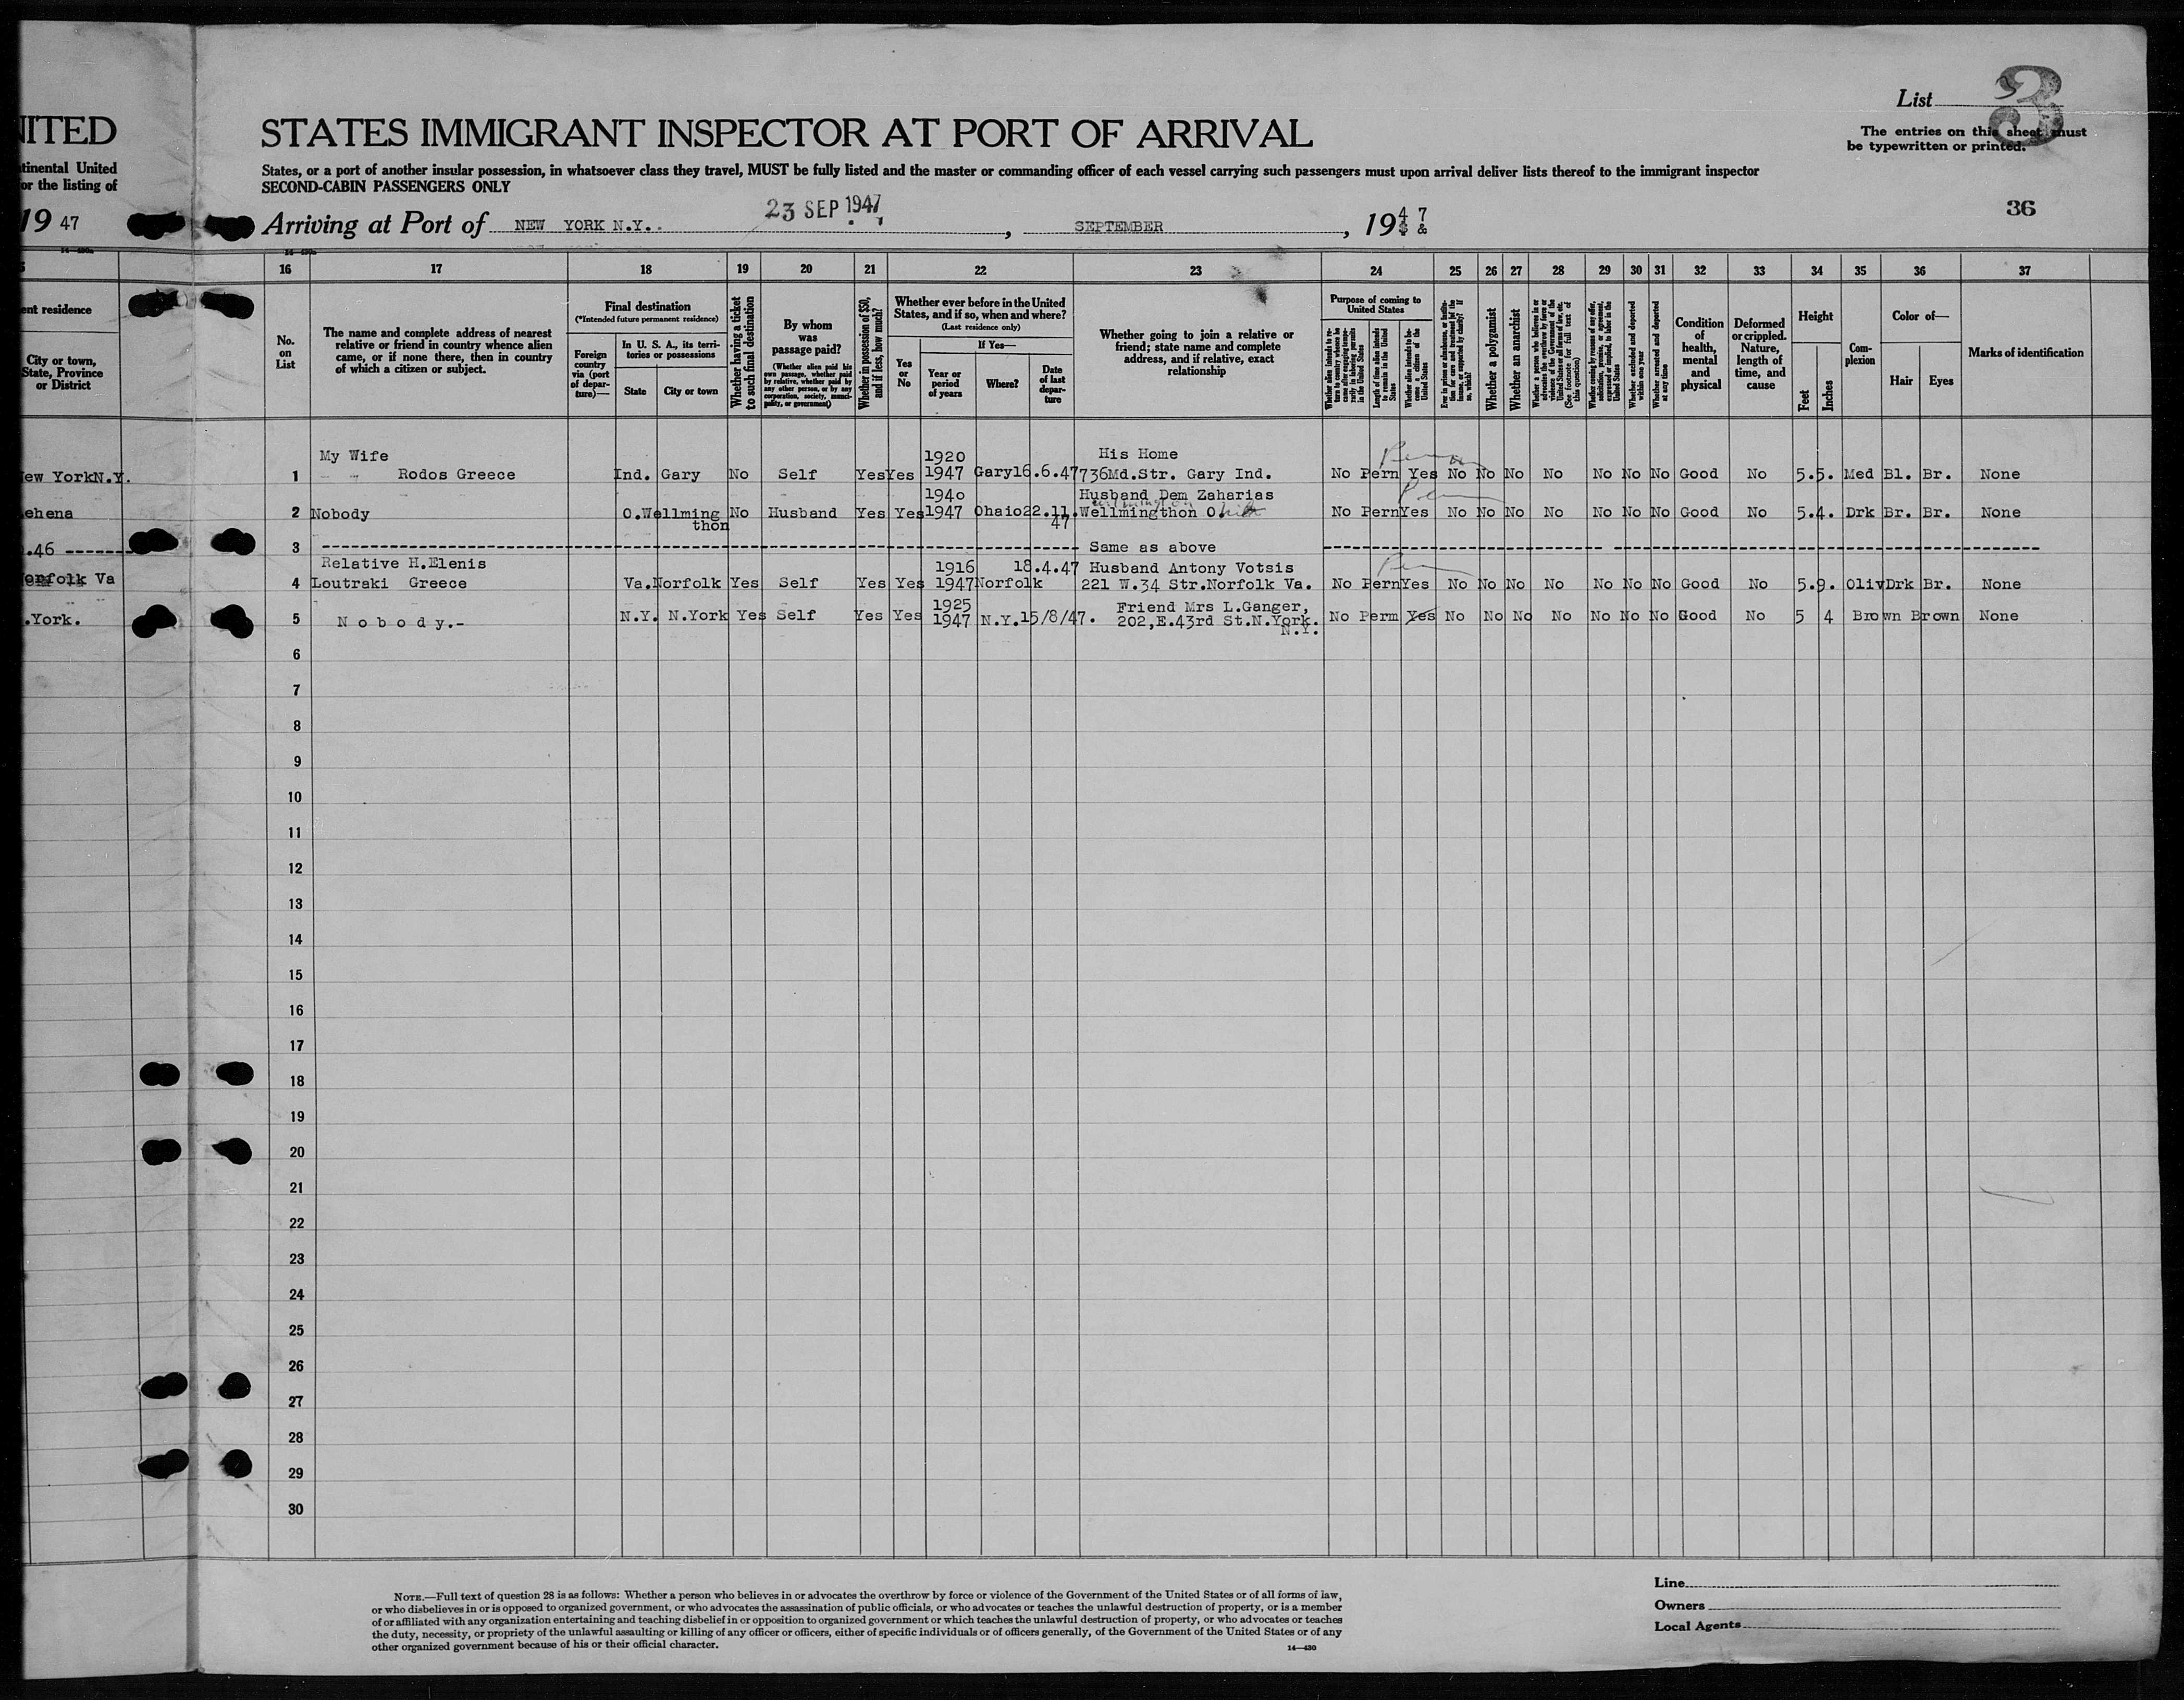 NITED
tinental United
or the listing of
19 47
ent residence
City or town,
State, Province
or District
ew YorkN.Y.
.46 -------
Norfolk Va
.York.
List 3
The entries on this sheet must
be typewritten or printed.
36
STATES IMMIGRANT INSPECTOR AT PORT OF ARRIVAL
States, or a port of another insular possession, in whatsoever class they travel, MUST be fully listed and the master or commanding officer of each vessel carrying such passengers must upon arrival deliver lists thereof to the immigrant inspector
SECOND-CABIN PASSENGERS ONLY
23 SEP 1947
Arriving at Port of NEW YORK N.Y. , SEPTEMBER , 1947
16 17 18 19 20 21 22 23 24 25 26 27 28 29 30 31 32 33 34 35 36 37
No.
on
List
The name and complete address of nearest
relative or friend in country whence alien
came, or if none there, then in country
of which a citizen or subject.
Final destination
(*Intended future permanent residence)
Foreign
country
via (port
of depar-
ture)—
In U. S. A., its terri-
tories or possessions
State City or town
Whether having a ticket
to such final destination
By whom
was
passage paid?
(Whether alien paid his
own passage, whether paid
by relative, whether paid by
any other person, or by any
corporation, society, munici-
pality, or government)
Whether in possession of $50,
and if less, how much?
Whether ever before in the United
States, and if so, when and where?
(Last residence only)
Yes
or
No
If Yes—
Year or
period
of years
Where?
Date
of last
depar-
ture
Whether going to join a relative or
friend; state name and complete
address, and if relative, exact
relationship
Purpose of coming to
United States
Whether alien intends to re-
turn to country whence he
came after engaging tempo-
rarily in laboring pursuits
in the United States
Length of time alien intends
to remain in the United
States
Whether alien intends to be-
come a citizen of the
United States
Ever in prison or almshouse, or institu-
tion for care and treatment of the
insane, or supported by charity? If
so, which?
Whether a polygamist
Whether an anarchist
Whether a person who believes in or
advocates the overthrow by force or
violence of the Government of the
United States or all forms of law, etc.
(See footnote for full text of
this question)
Whether coming by reason of any offer,
solicitation, promise, or agreement,
expressed or implied, to labor in the
United States
Whether excluded and deported
within one year
Whether arrested and deported
at any time
Condition
of
health,
mental
and
physical
Deformed
or crippled.
Nature,
length of
time, and
cause
Height
Feet
Inches
Com-
plexion
Color of—
Hair Eyes
Marks of identification
My Wife 1920 His Home
1 Rodos Greece Ind. Gary No Self Yes Yes 1947 Gary 16.6.47 736Md.Str. Gary Ind. No Pern Yes No No No No No No No Good No 5.5. Med Bl. Br. None
194o Husband Dem Zaharias
2 Nobody O. Wellming No Husband Yes Yes 1947 Ohaio 22.11. Wellmingthon O. No Pern Yes No No No No No No No Good No 5.4. Drk Br. Br. None
thon 47
3 ------------ Same as above ------------
Relative H.Elenis 1916 18.4.47 Husband Antony Votsis
4 Loutraki Greece Va. Norfolk Yes Self Yes Yes 1947 Norfolk 221 W.34 Str.Norfolk Va. No Pern Yes No No No No No No No Good No 5.9. Oliv Drk Br. None
1925 Friend Mrs L.Ganger,
5 N o b o d y.- N.Y. N.York Yes Self Yes Yes 1947 N.Y. 15/8/47. 202,E.43rd St.N.York. No Perm Yes No No No No No No No Good No 5 4 Brown Brown None
N.Y.
6
7
8
9
10
11
12
13
14
15
16
17
18
19
20
21
22
23
24
25
26
27
28
29
30
NOTE.—Full text of question 28 is as follows: Whether a person who believes in or advocates the overthrow by force or violence of the Government of the United States or of all forms of law,
or who disbelieves in or is opposed to organized government, or who advocates the assassination of public officials, or who advocates or teaches the unlawful destruction of property, or is a member
of or affiliated with any organization entertaining and teaching disbelief in or opposition to organized government or which teaches the unlawful destruction of property, or who advocates or teaches
the duty, necessity, or propriety of the unlawful assaulting or killing of any officer or officers, either of specific individuals or of officers generally, of the Government of the United States or of any
other organized government because of his or their official character.
14—430
Line
Owners
Local Agents